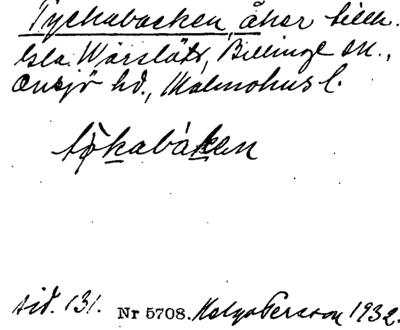 Tyckabacken, åker tillh.
Gla Wärslätt, Billinge sn.,
Onsjö hd., Malmöhus l.
tỳkabáken
sid. 131. Nr 5708. Helge Persson 1932.